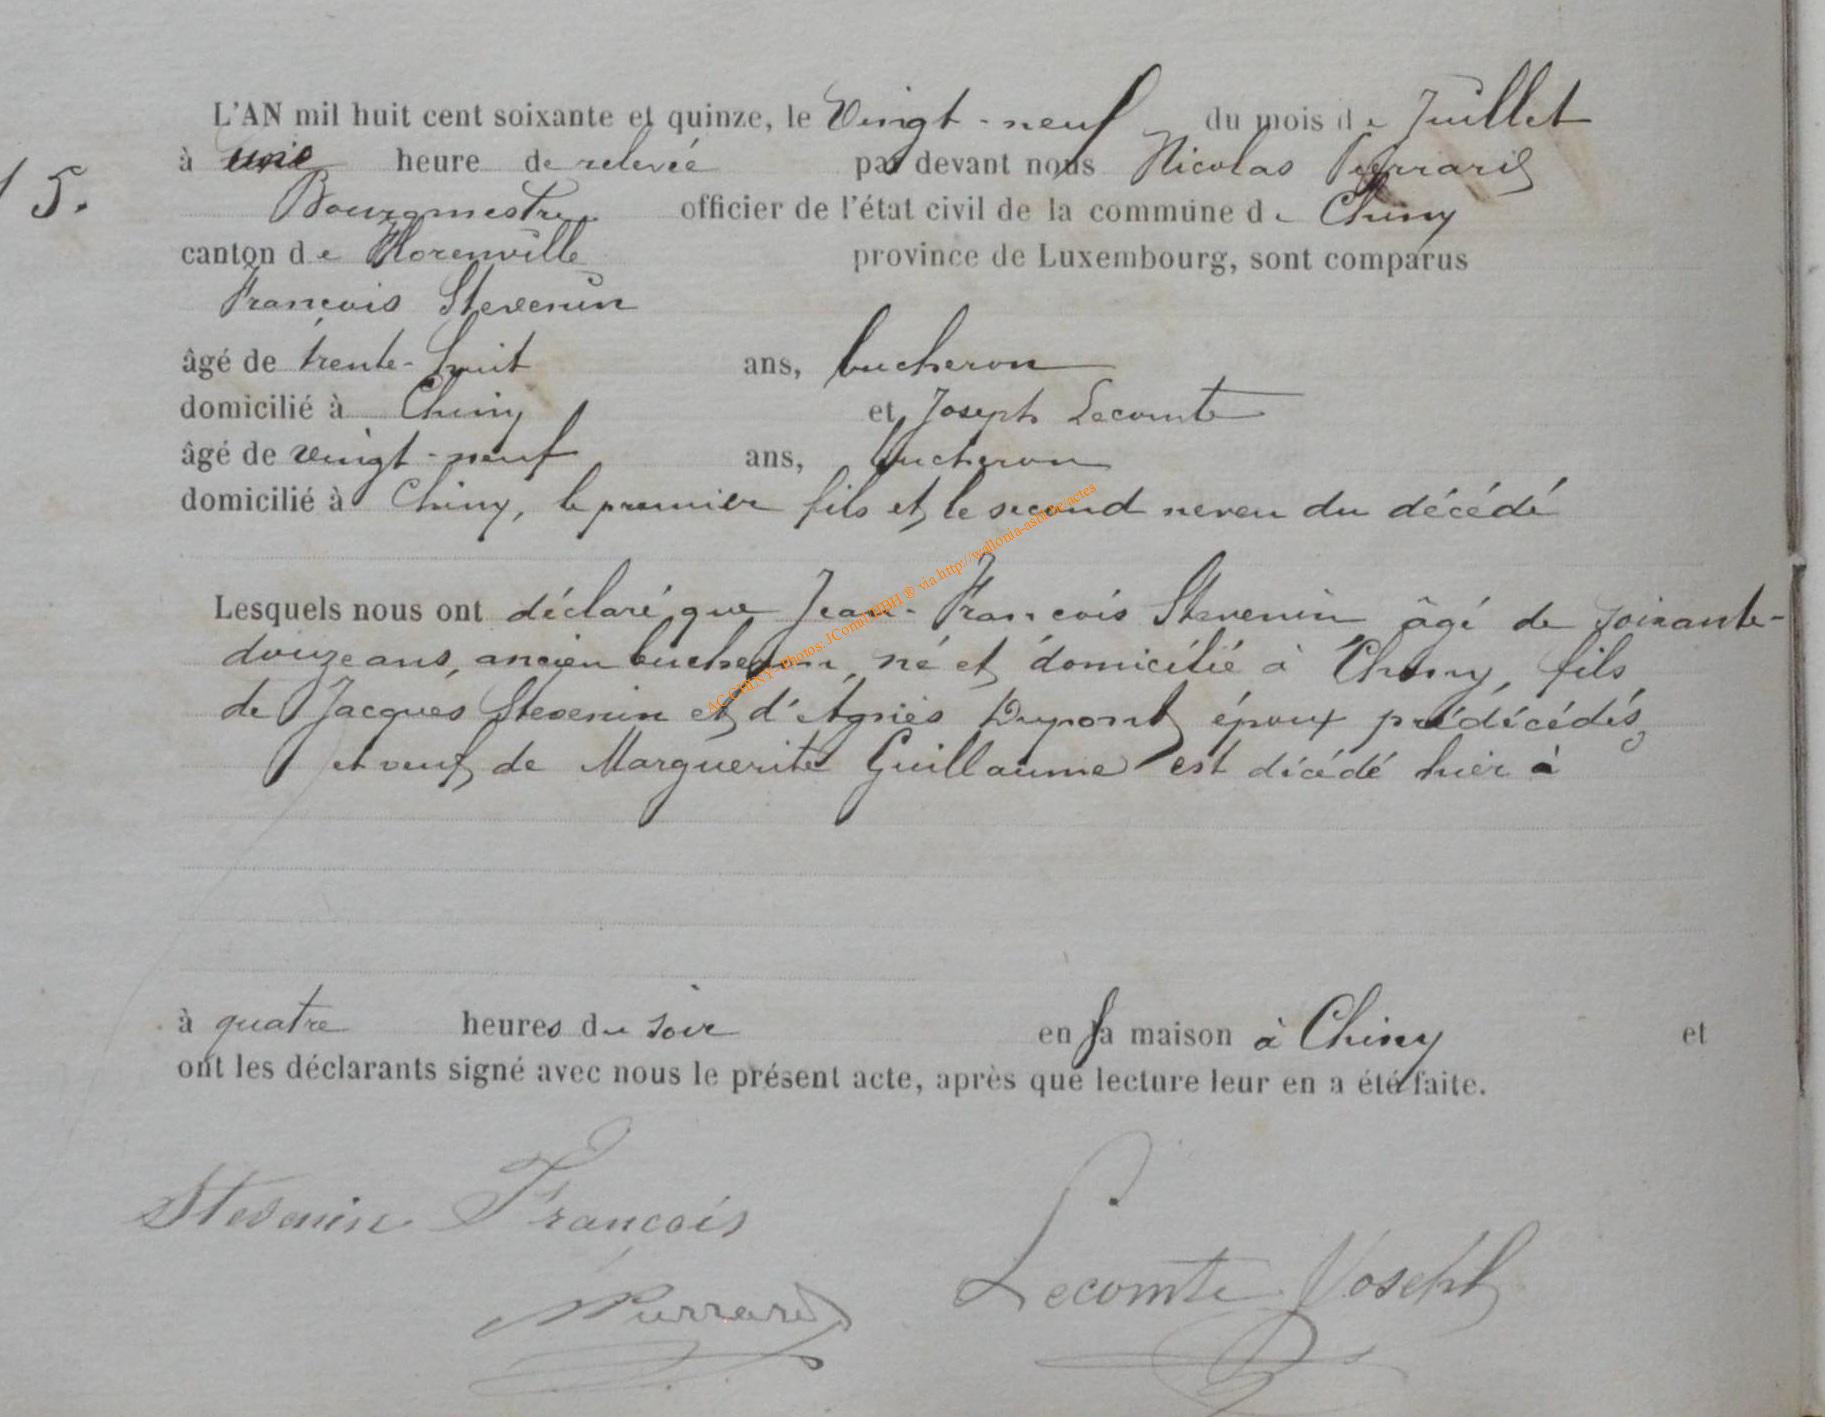 L'AN mil huit cent soixante et quinze, le Vingt-neuf du mois de Juillet
15. à une heure de relevée par devant nous Nicolas Perrard
Bourgmestre officier de l'état civil de la commune de Chiny
canton de Florenville province de Luxembourg, sont comparus
François Stevenin
âgé de trente-huit ans, bucheron
domicilié à Chiny et Joseph Lecomte
âgé de vingt-neuf ans, bucheron
domicilié à Chiny, le premier fils et le second neveu du décédé
Lesquels nous ont déclaré que Jean-François Stevenin âgé de soixante-
douze ans, ancien bucheron, né et domicilié à Chiny, fils
de Jacques Stevenin et d'Agnès Dupont époux prédécédés
et veuf de Marguerite Guillaume est décédé hier à
à quatre heures du soir en sa maison à Chiny et
ont les déclarants signé avec nous le présent acte, après que lecture leur en a été faite.
Stevenin François
Lecomte Joseph
NPerrard
AC CHINY Photos JComil TBH ® via http://wallonia-asbl.be/actes